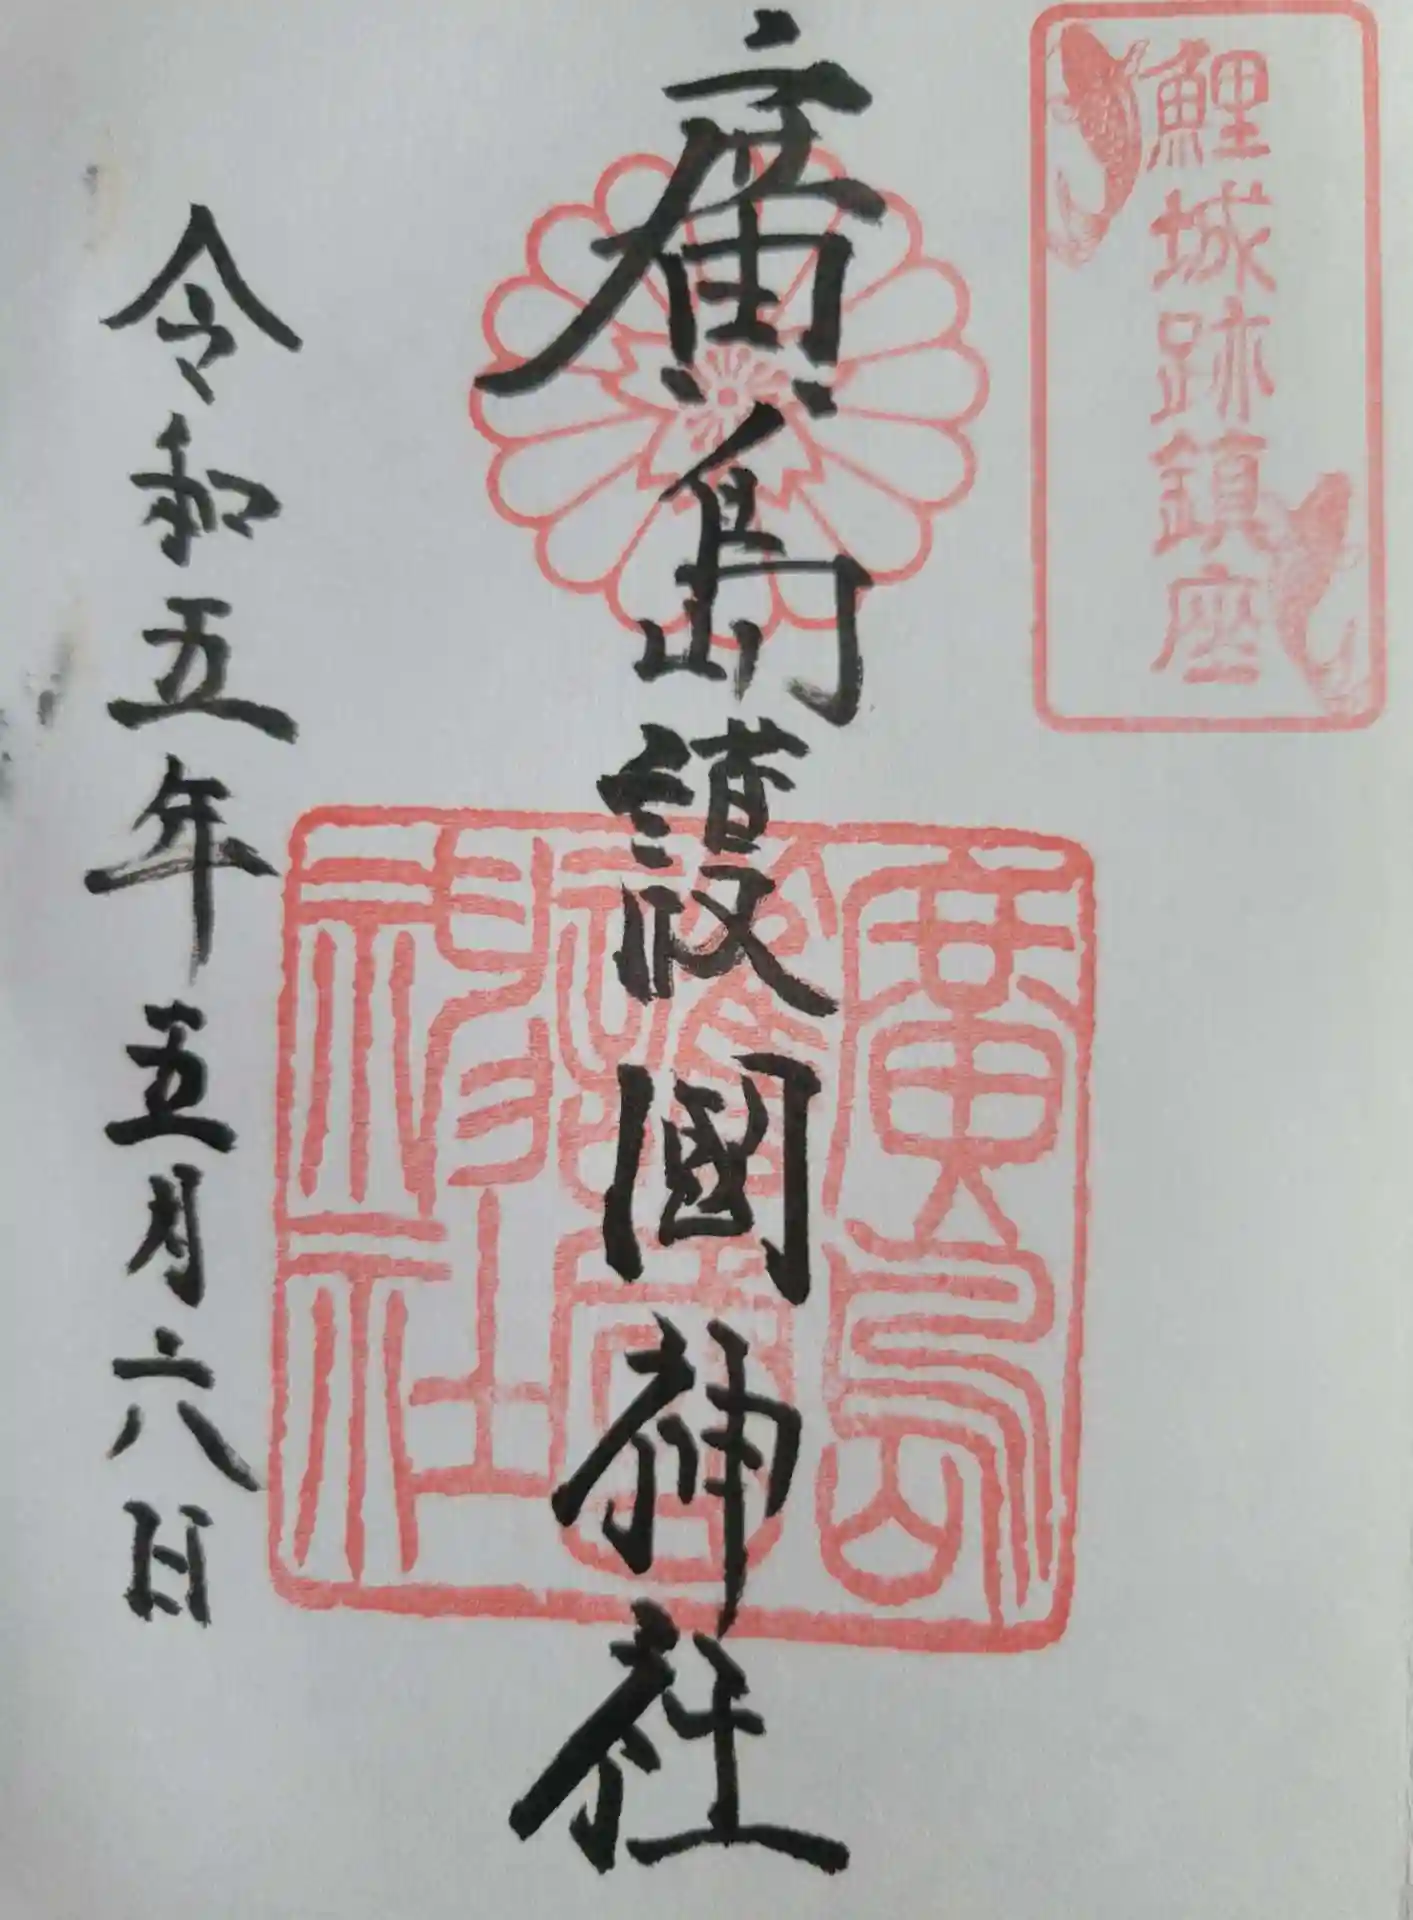 鯉城跡鎮座
廣島護國神社
廣島
護國
神社
令和五年五月六日